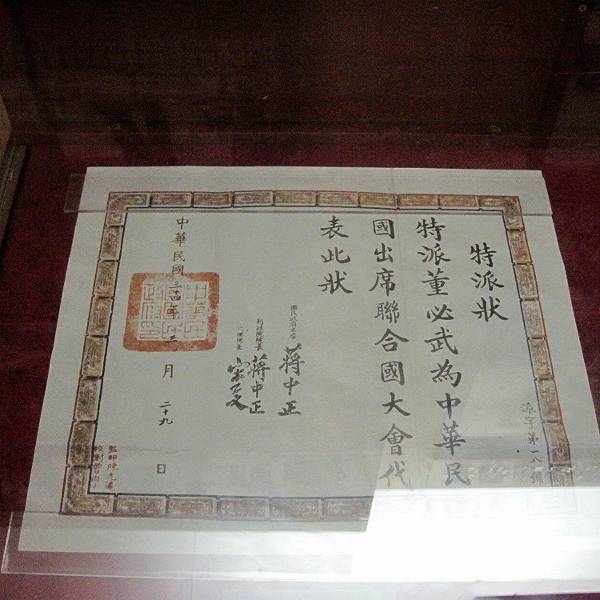 特派狀
特派董必武為中華民
國出席聯合國大會代
表此狀
國民政府主席 蔣中正
行政院院長 蔣中正
中華民國三十四年三月二十九日